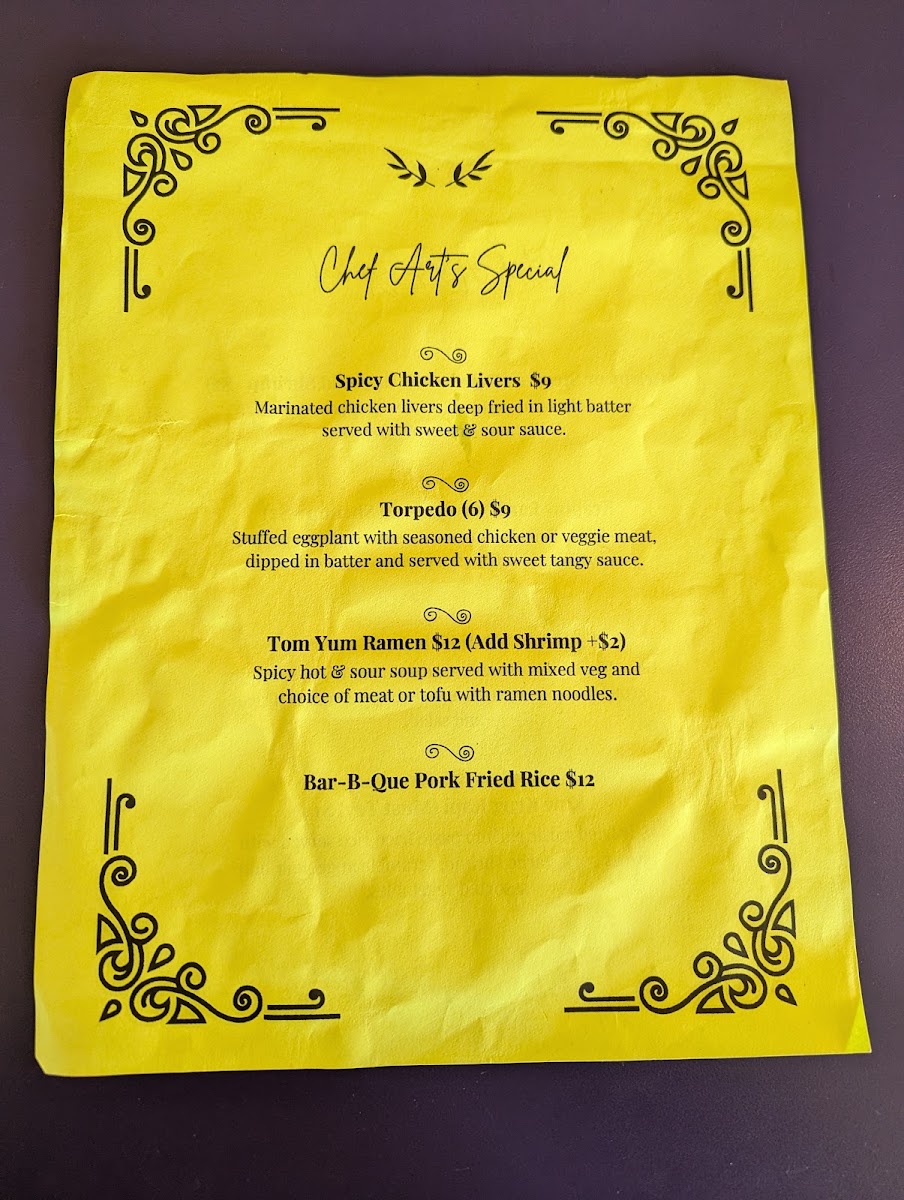 Chef Art's Special
Spicy Chicken Livers $9
Marinated chicken livers deep fried in light batter
served with sweet & sour sauce.
Torpedo (6) $9
Stuffed eggplant with seasoned chicken or veggie meat,
dipped in batter and served with sweet tangy sauce.
Tom Yum Ramen $12 (Add Shrimp +$2)
Spicy hot & sour soup served with mixed veg and
choice of meat or tofu with ramen noodles.
Bar-B-Que Pork Fried Rice $12